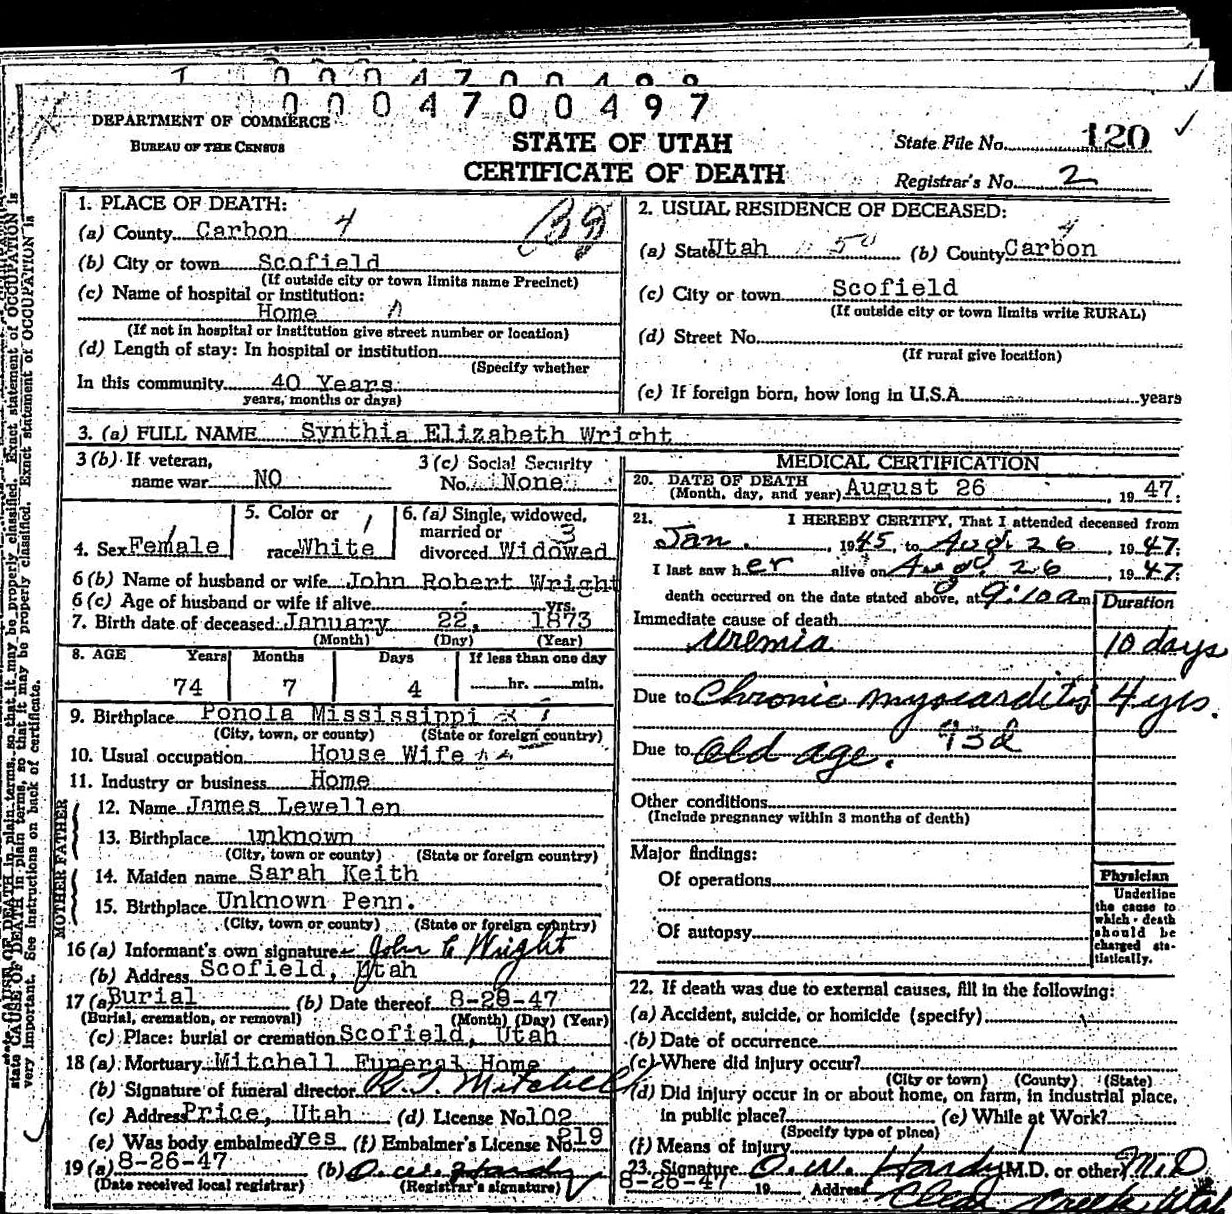 0 0 0 4 7 0 0 4 9 8
0 0 0 4 7 0 0 4 9 7
DEPARTMENT OF COMMERCE
BUREAU OF THE CENSUS
STATE OF UTAH
CERTIFICATE OF DEATH
State File No. 120
Registrar's No. 2
1. PLACE OF DEATH:
(a) County Carbon 4
(b) City or town Scofield
(If outside city or town limits name Precinct)
(c) Name of hospital or institution:
Home
(If not in hospital or institution give street number or location)
(d) Length of stay: In hospital or institution
(Specify whether
In this community 40 Years
years, months or days)
2. USUAL RESIDENCE OF DECEASED:
(a) State Utah (b) County Carbon
(c) City or town Scofield
(If outside city or town limits write RURAL)
(d) Street No.
(If rural give location)
(e) If foreign born, how long in U.S.A. years
3. (a) FULL NAME Synthia Elizabeth Wright
3 (b) If veteran, name war NO
3 (c) Social Security No. None
4. Sex Female
5. Color or race White
6. (a) Single, widowed, married or divorced Widowed 3
6 (b) Name of husband or wife John Robert Wright
6 (c) Age of husband or wife if alive yrs.
7. Birth date of deceased January 22, 1873
(Month) (Day) (Year)
8. AGE Years Months Days If less than one day
74 7 4 hr. min.
9. Birthplace Ponola Mississippi
(City, town, or county) (State or foreign country)
10. Usual occupation House Wife
11. Industry or business Home
FATHER
12. Name James Lewellen
13. Birthplace unknown
(City, town or county) (State or foreign country)
MOTHER
14. Maiden name Sarah Keith
15. Birthplace Unknown Penn.
(City, town or county) (State or foreign country)
16 (a) Informant's own signature John C Wright
(b) Address Scofield, Utah
17 (a) Burial (b) Date thereof 8-29-47
(Burial, cremation, or removal) (Month) (Day) (Year)
(c) Place: burial or cremation Scofield, Utah
18 (a) Mortuary Mitchell Funeral Home
(b) Signature of funeral director R. J. Mitchell
(c) Address Price, Utah (d) License No. 102
(e) Was body embalmed? yes (f) Embalmer's License No. 219
19 (a) 8-26-47 (b) O. W. Hardy
(Date received local registrar) (Registrar's signature)
MEDICAL CERTIFICATION
20. DATE OF DEATH
(Month, day, and year) August 26, 1947.
21. I HEREBY CERTIFY, That I attended deceased from
Jan. , 1945, to Aug. 26, 1947.
I last saw her alive on Aug. 26, 1947.
death occurred on the date stated above, at 9:10 a m
Duration
Immediate cause of death
uremia 10 days
Due to Chronic myocarditis 4 yrs.
Due to old age. 93d
Other conditions
(Include pregnancy within 3 months of death)
Major findings:
Of operations
Of autopsy
Physician
Underline
the cause to
which death
should be
charged sta-
tistically.
22. If death was due to external causes, fill in the following:
(a) Accident, suicide, or homicide (specify)
(b) Date of occurrence
(c) Where did injury occur?
(City or town) (County) (State)
(d) Did injury occur in or about home, on farm, in industrial place,
in public place? (e) While at Work?
(Specify type of place)
(f) Means of injury
23. Signature O. W. Hardy M.D. or other M.D
8-26-47 19 Address Clear Creek Utah
state CAUSE OF DEATH in plain terms, so that it may be properly classified. Exact statement of OCCUPATION is
very important. See instructions on back of certificate.